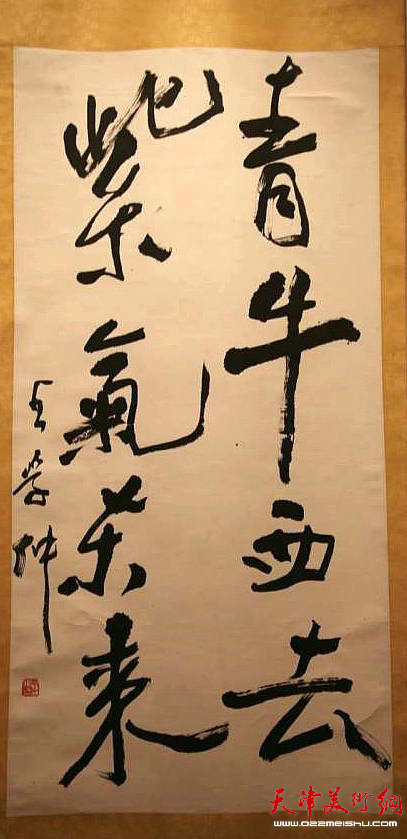 青牛西去
紫氣东来
王学仲
天津美術網
www.022meishu.com